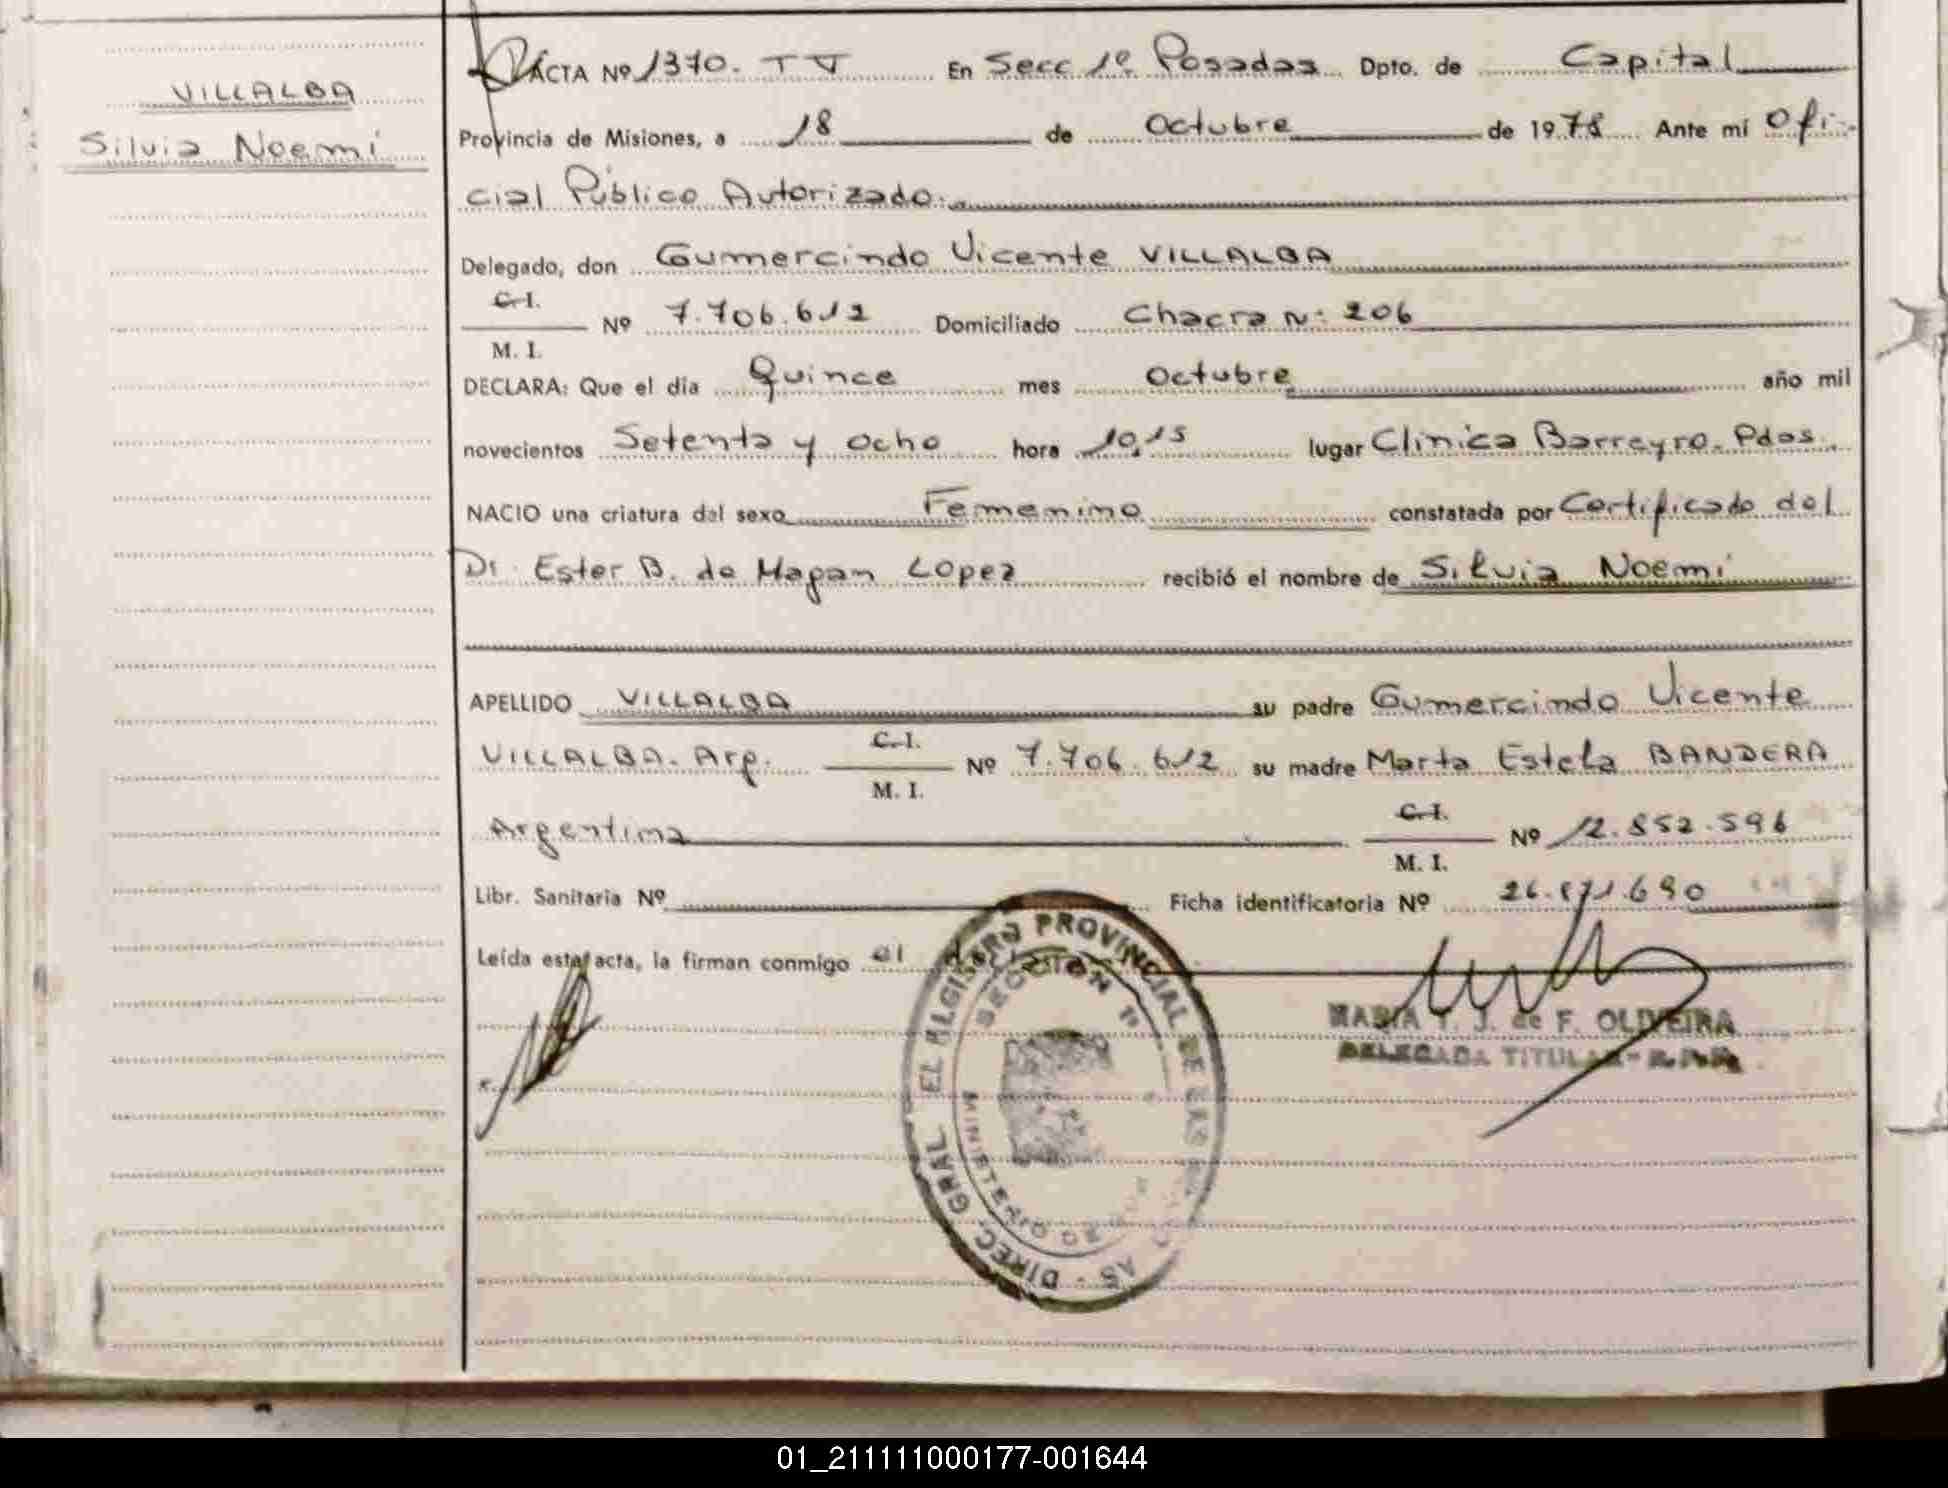 VILLALBA
Silvia Noemi
ACTA Nº 1370. T V En Secc 1º Posadas Dpto. de Capital
Provincia de Misiones, a 18 de Octubre de 1978 Ante mí Ofi-
cial Público Autorizado.
Delegado, don Gumercindo Vicente VILLALBA
C.I.
M. I.
Nº 7.706.612 Domiciliado Chacra Nº 206
DECLARA: Que el día Quince mes Octubre año mil
novecientos Setenta y ocho hora 10,15 lugar Clinica Barreyro. Pdas.
NACIO una criatura del sexo Femenino constatada por Certificado del
Dr. Ester B. de Magan Lopez recibió el nombre de Silvia Noemi
APELLIDO VILLALBA su padre Gumercindo Vicente
VILLALBA. Arg. C.I. M. I. Nº 7.706.612 su madre Marta Estela BANDERA
Argentina C.I. M. I. Nº 12.852.596
Libr. Sanitaria Nº Ficha identificatoria Nº 26.871.690
Leída esta acta, la firman conmigo el
DIREC. GRAL EL REGISTRO PROVINCIAL DE LAS AS
SECCION 1ª
MINISTERIO DE
MARIA J. de F. OLIVEIRA
DELEGADA TITULAR
01_211111000177-001644